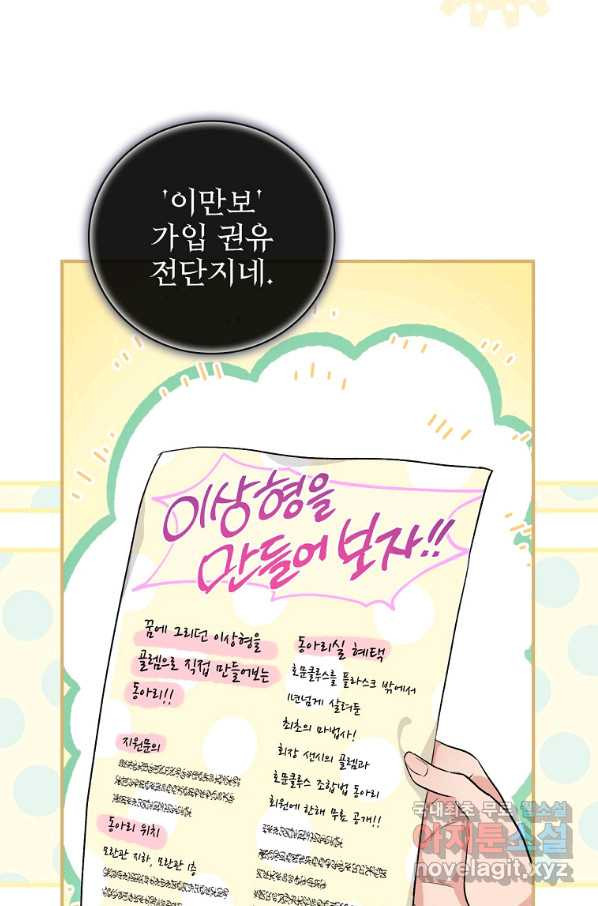 '이만보'
가입 권유
전단지네.
이상형을
만들어 보자!!
꿈에 그리던 이상형을
골렘으로 직접 만들어보는
동아리!!
지원문의
동아리 위치
모란관 지하, 모란관 1층
동아리실 혜택
호문쿨루스를 플라스크 밖에서
1년넘게 살려둔
최초의 마법사!
회장 선시의 골렘과
호문쿨루스 조합법 동아리
회원에 한해 무료 공개!!
국내최초 무료 웹툰
아지툰소설
novelagit.xyz